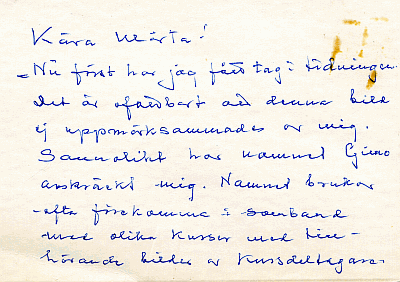 Kära Märta!
Nu först har jag fått tag i tidningen.
Det är ofattbart att denna bild
ej uppmärksammades av mig.
Sannolikt har namnet Gimo
avskräckt mig. Namnet brukar
ofta förekomma i samband
med olika kurser med till-
hörande bilder av kursdeltagare.